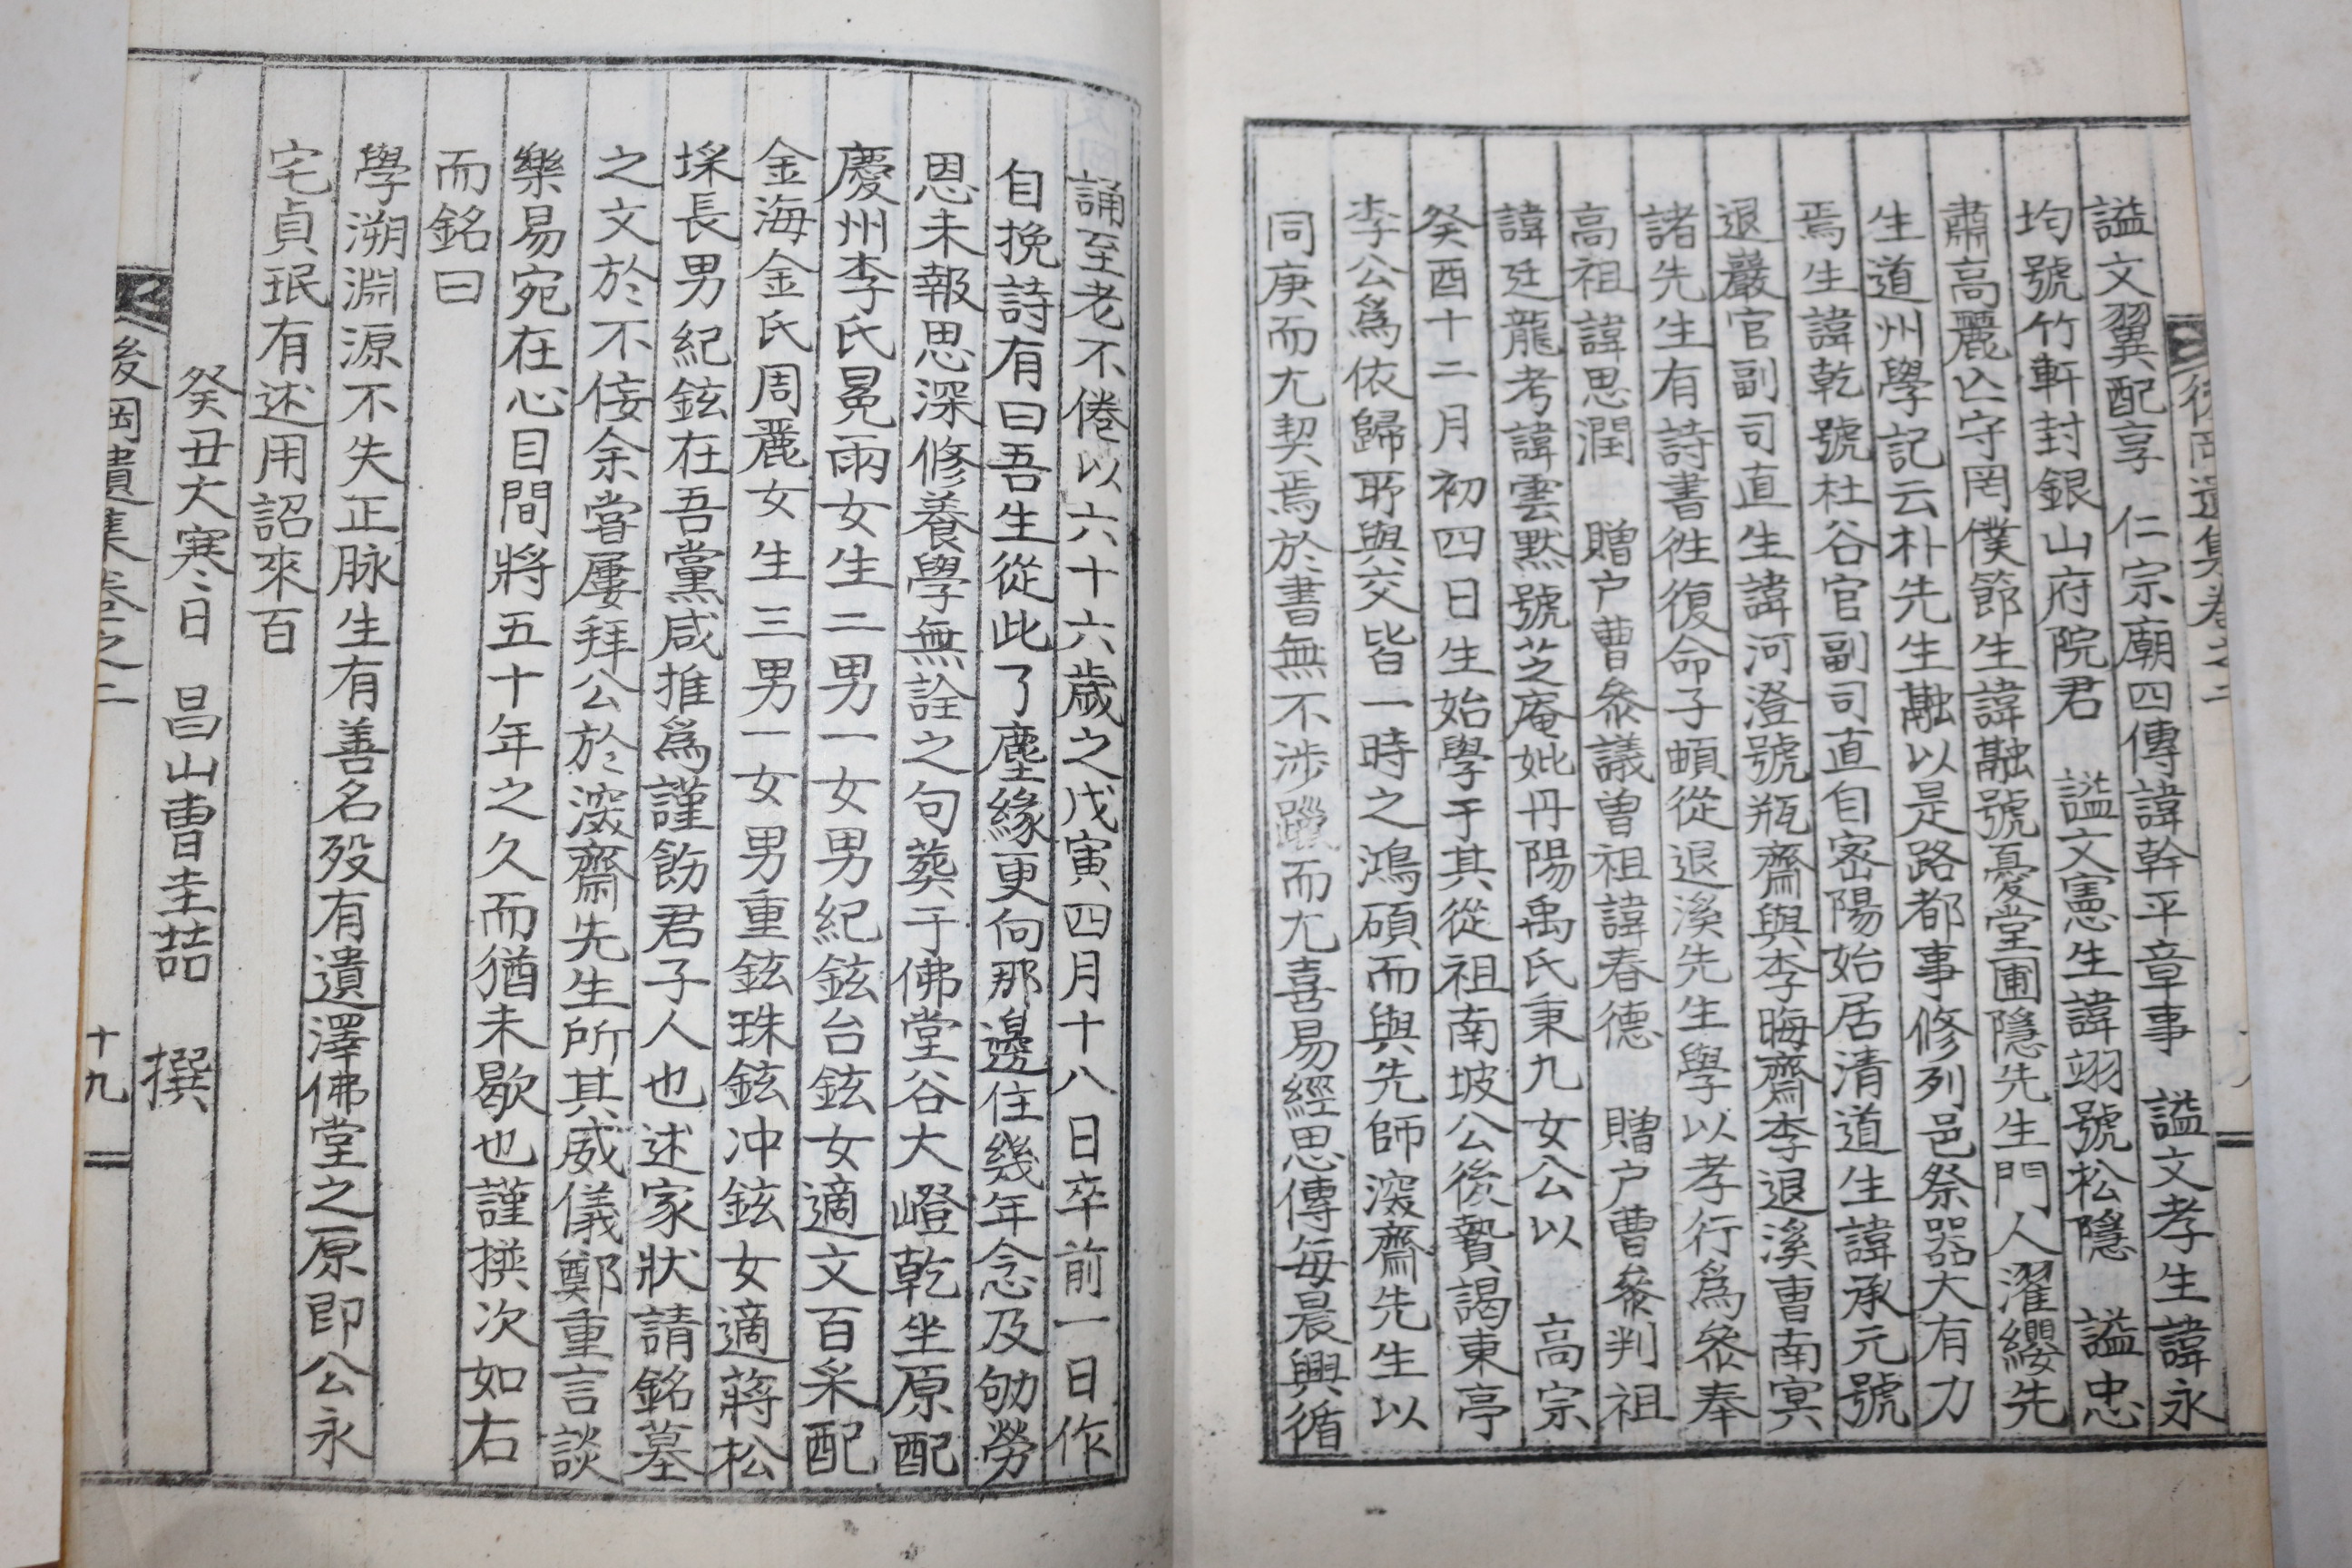 後岡遺集卷之二
謚文翼配享 仁宗廟四傳諱幹平章事 謚文孝生諱永
均號竹軒封銀山府院君 謚文憲生諱翊號松隱 謚忠
肅高麗亡守罔僕節生諱融號憂堂圃隱先生門人濯纓先
生道州學記云朴先生融以是路都事修列邑祭器大有力
焉生諱乾號杜谷官副司直自密陽始居清道生諱承元號
退巖官副司直生諱河澄號瓶齋與李晦齋李退溪曹南冥
諸先生有詩書徃復命子頔從退溪先生學以孝行爲叅奉
高祖諱思潤 贈户曹叅議曾祖諱春德 贈户曹叅判祖
諱廷龍考諱雲黙號芝庵妣丹陽禹氏秉九女公以 高宗
癸酉十二月初四日生始學于其從祖南坡公後贄謁東亭
李公爲依歸耶與交皆一時之鴻碩而與先師深齋先生以
同庚而尤契焉於書無不涉躐而尤喜易經思傳每晨興循
誦至老不倦以六十六歲之戊寅四月十八日卒前一日作
自挽詩有曰吾生從此了塵緣更向那邊住幾年念及劬勞
恩未報思深修養學無詮之句葬于佛堂谷大嶝乾坐原配
慶州李氏冕雨女生二男一女男紀鉉台鉉女適文百采配
金海金氏周麗女生三男一女男重鉉珠鉉冲鉉女適蔣松
埰長男紀鉉在吾黨咸推爲謹飭君子人也述家狀請銘墓
之文於不侫余嘗屢拜公於深齋先生所其威儀鄭重言談
樂易宛在心目間將五十年之久而猶未歇也謹撰次如右
而銘曰
學溯淵源不失正脉生有善名歿有遺澤佛堂之原卽公永
宅貞珉有述用詔來百
癸丑大寒日 昌山曹圭喆 撰
後岡遺集卷之二
十九